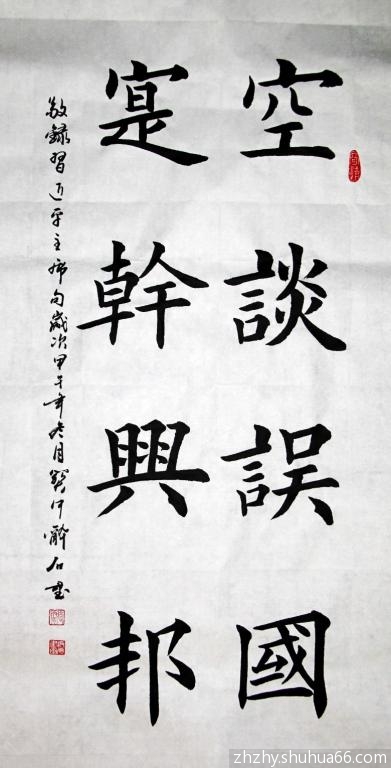 空談誤國
寔幹興邦
敬錄習近平主席句歲次甲午年冬月
zhzhy.shuhua66.com